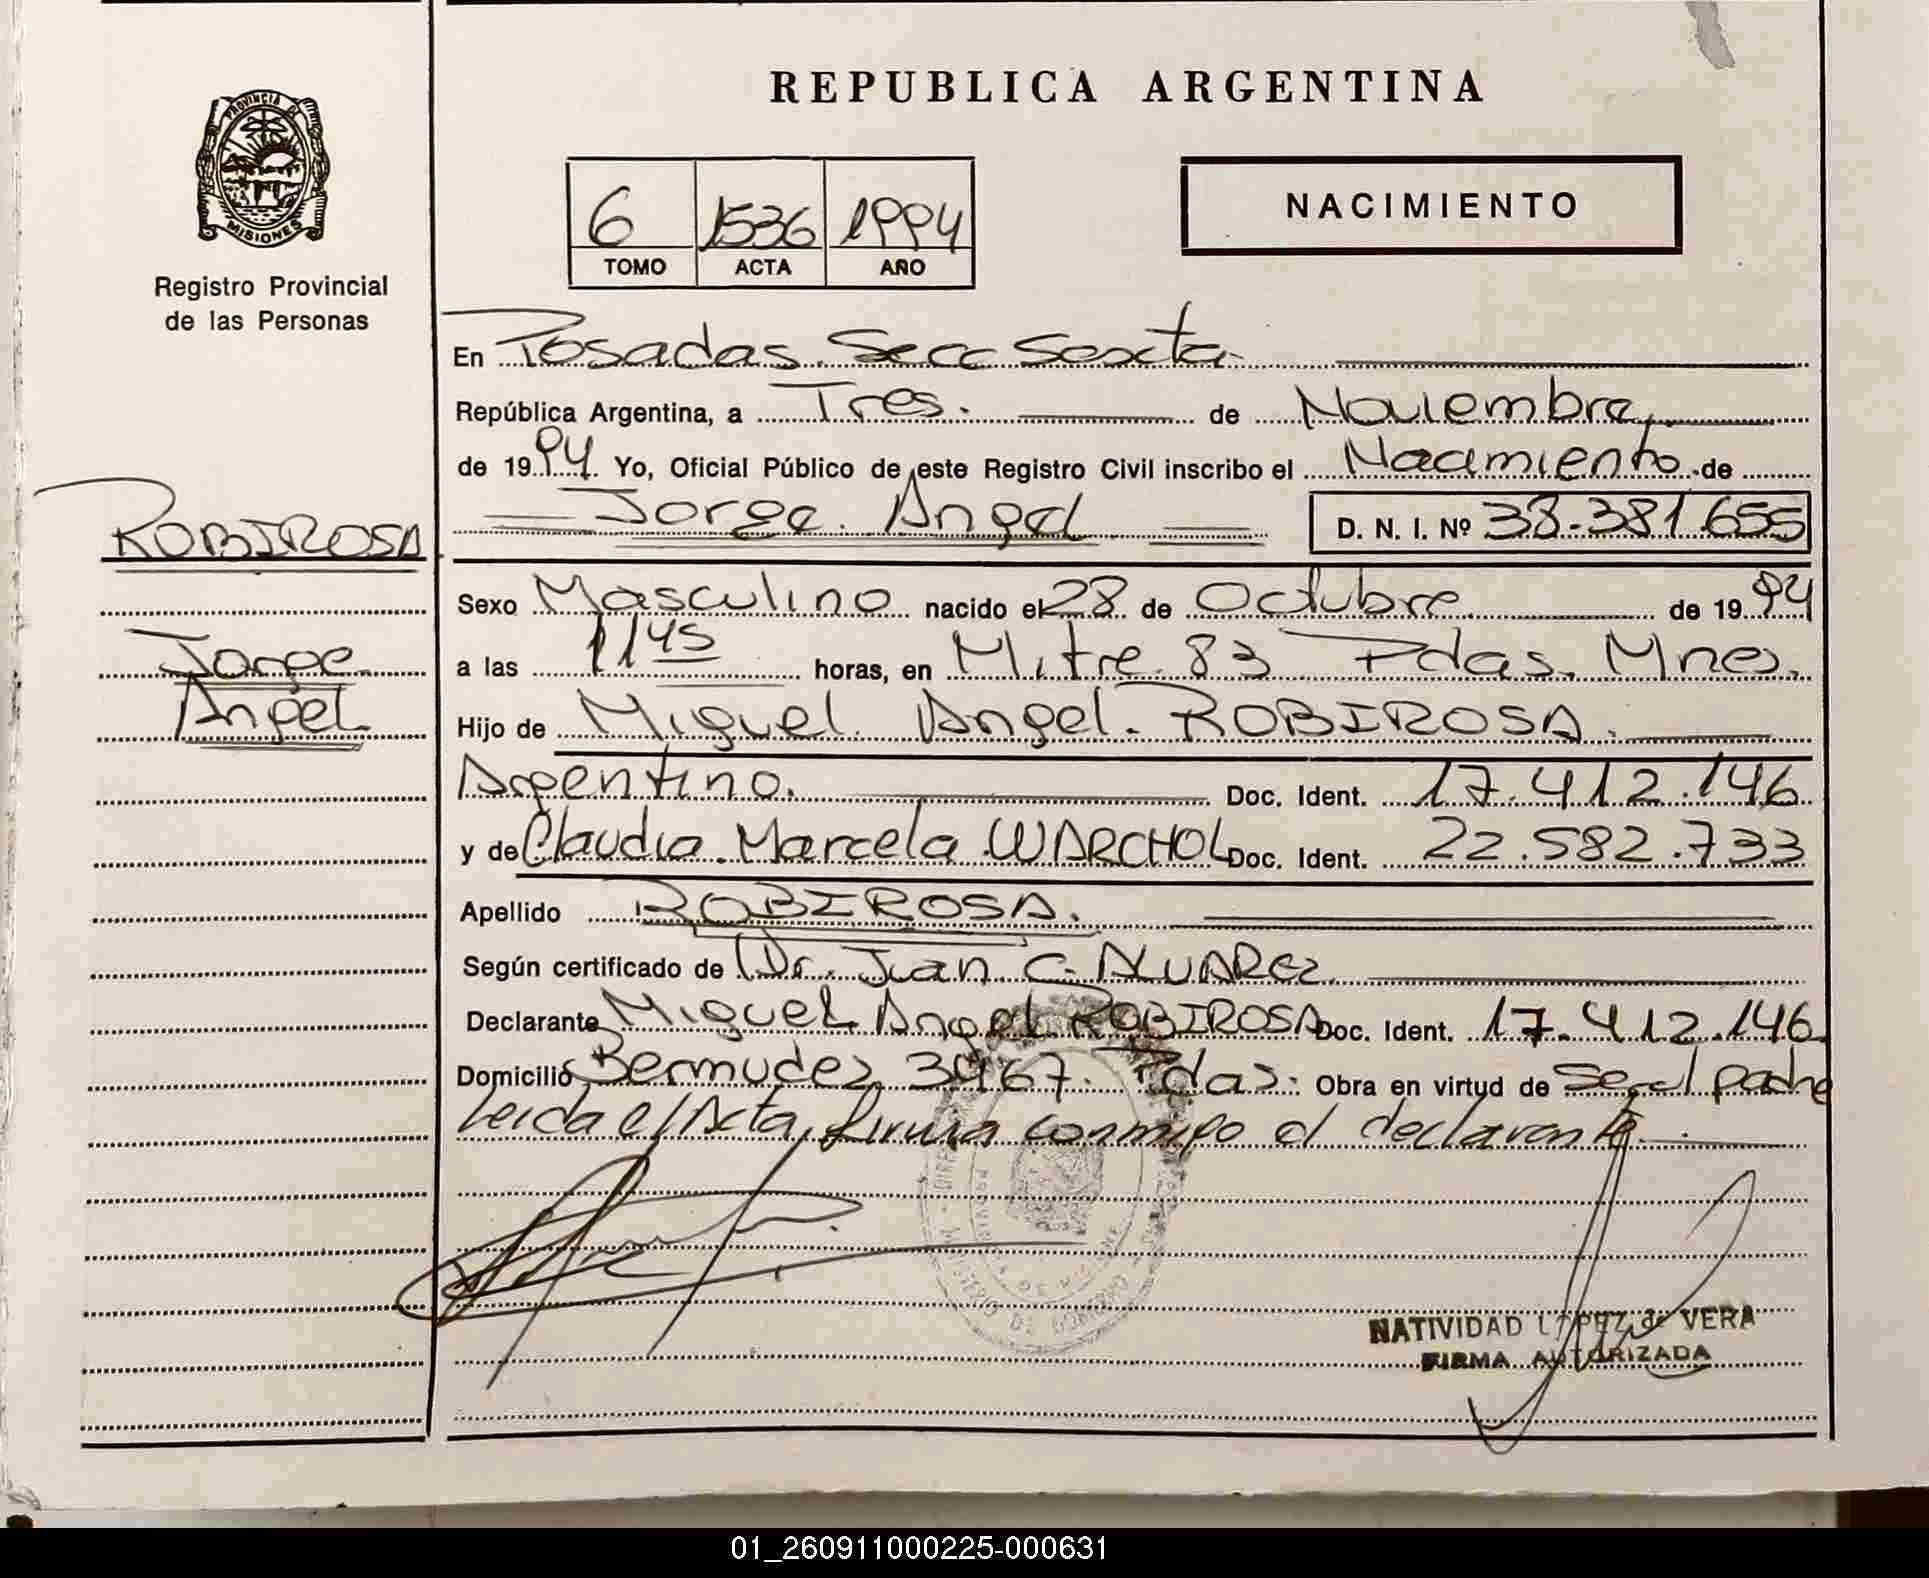 REPUBLICA ARGENTINA
PROVINCIA DE
MISIONES
Registro Provincial
de las Personas
6 1536 1994
TOMO ACTA AÑO
NACIMIENTO
En Posadas. Secc Sexta.
República Argentina, a Tres. de Noviembre,
de 1994. Yo, Oficial Público de este Registro Civil inscribo el Nacimiento de
Jorge Angel D. N. I. Nº 38.381.655
ROBIROSA
Jorge
Angel
Sexo Masculino nacido el 28 de Octubre de 1994
a las 11 45 horas, en Mitre 83 Pdas. Mnes.
Hijo de Miguel Angel ROBIROSA.
Argentino. Doc. Ident. 17.412.146
y de Claudia Marcela WARCHOL Doc. Ident. 22.582.733
Apellido ROBIROSA.
Según certificado de Dr. Juan C. ALVAREZ
Declarante Miguel Angel ROBIROSA Doc. Ident. 17.412.146
Domicilio Bermudez 3467. Pdas. Obra en virtud de ser el padre
Leida el Acta, firma conmigo el declarante.
MINISTERIO DE GOBIERNO
NATIVIDAD LOPEZ de VERA
FIRMA AUTORIZADA
01_260911000225-000631